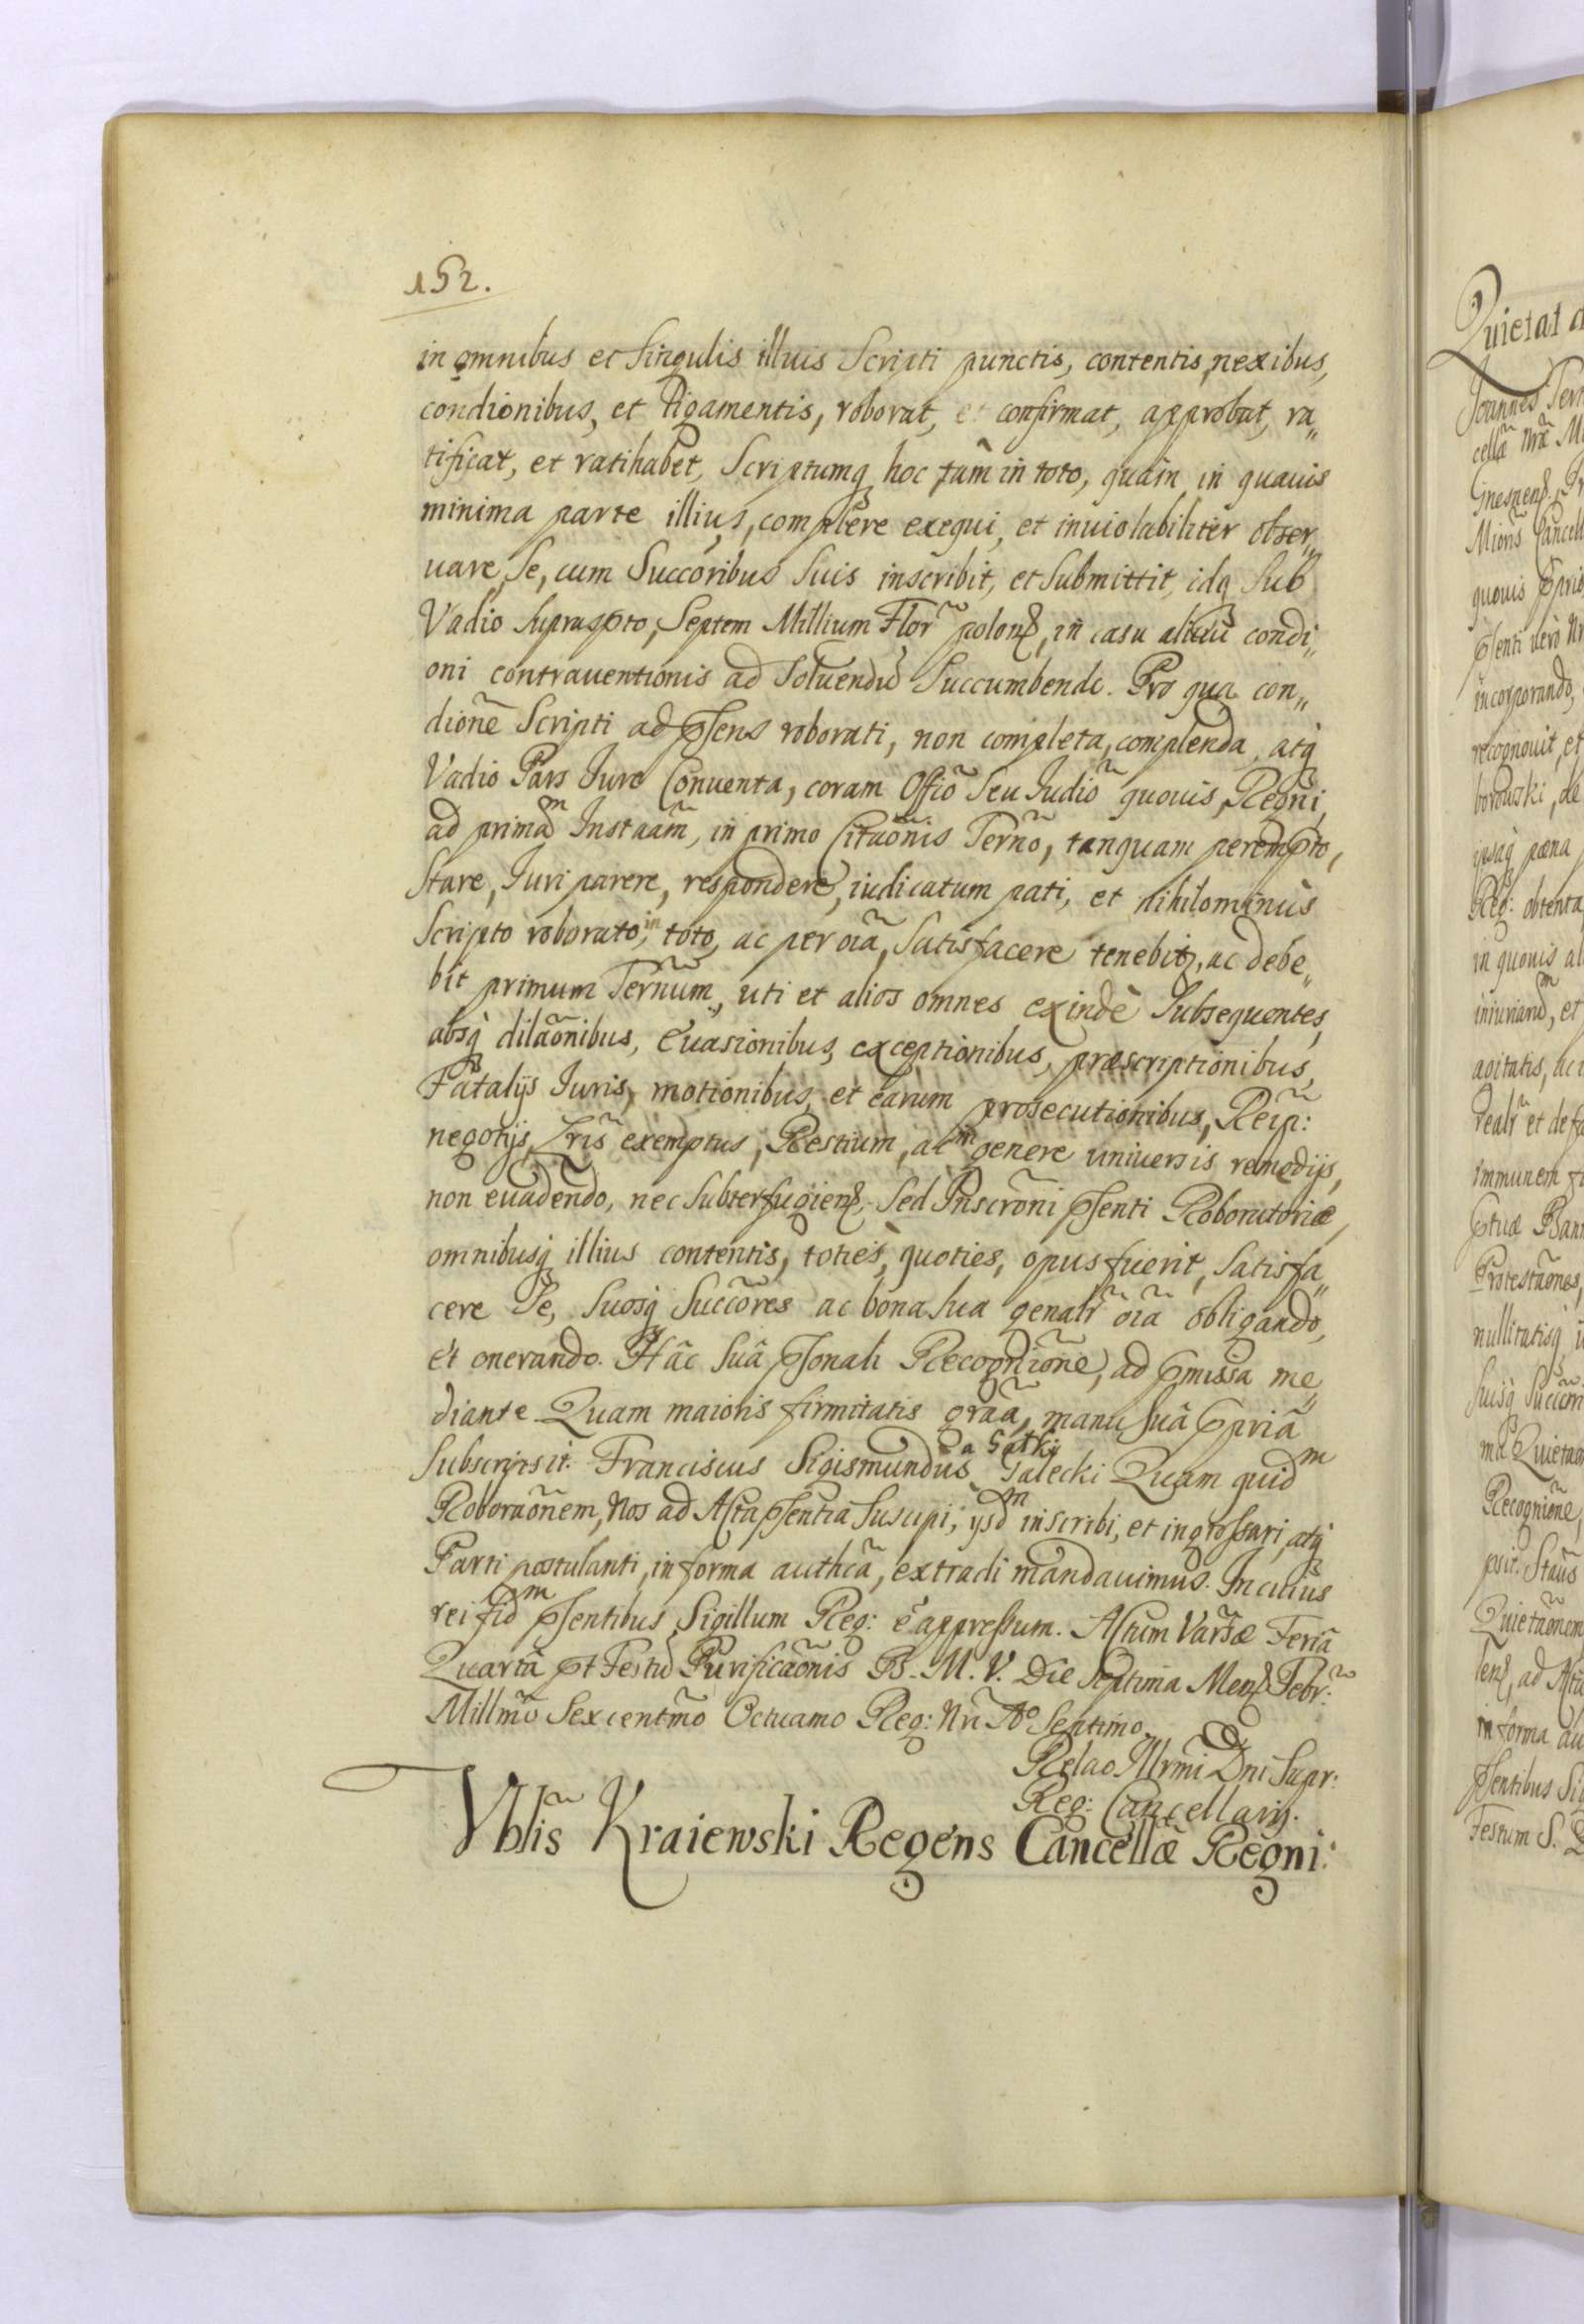 152.
in omnibus et singulis illius Scripti punctis, contentis, nexibus,
condionibus, et ligamentis, roborat, et confirmat, approbat, ra„
tificat, et ratihabet, Scriptumq hoc tam in toto, quam in quauis
minima parte illius, complere exequi, et inuiolabiliter obser„
uare, Se, cum Succoribus Suis inscribit, et Submittit, idq Sub
Vadio supraspto, Septem Millium Flor̃ polon, in casu condi„
oni contrauentionis ad Soluendũ Succumbendi. Pro qua con„
dionẽ Scripti ad pſens roborati, non completa, complenda, atq
Vadio Pars Jure Conuenta, coram Offiõ Seu Judiõ quouis, Regni,
ad primam Instaãm, in primo Citaõnis Terñõ, tanquam perempto,
Stare, Juri parere, respondere, iudicatum pati, et nihilominùs
Scripto roborato, in toto, ac per oĩa, Satisfacere tenebit, ac debe„
bit primum Ter̃num, uti et alios omnes exindè Subsequentes,
absq̀ dilaõnibus, Euasionibus, exceptionibus, præscriptionibus,
Fatalijs Juris, motionibus, et earum prosecutionibus, Reip:
negotijs, Lris exemptus, Restium, ac in genere uniuersis remedijs,
non euadendo, nec Subterfugien, Sed Inscrõni pſenti Roboratoriæ,
omnibusq illius contentis, toties, quoties, opus fuerit, Satisfa„
cere Se, Suosq Succores ac bona sua genalr̃ oĩa obligando,
et onerando. Hâc Suâ pſonali Recognionẽ, ad pmissa me„
diante. Quam maioris firmitatis grãa, manu Suâ ppriâ
Subscripsit. Franciscus Sigismundus a Gałki Galecki Quam quidm
Roboraõnem, Nos ad Acta pſentia Suscipi, ysdm inscribi, et ingrossari, atq
Parti postulanti, in forma authcã, extradi mandauimus. In cuius
rei fidm pſentibus Sigillum Reg: ẽ appressum. Actum Varsæ Feriâ
Quartâ pt Festũ Purificaõnis B. M. V. Die Septima Mens Febr:
Millmõ Sexcentmõ Octuamo Reg: Nri Ao Septimo.
Relao Illrmi Dni Supr:
Reg: Cancellarij.
Kraiewski Regens Cancellæ Regni:
Quietat
Joannes
cellæ Nræ
Gnesnens
quouis
pſenti uerò
incorporando,
recognouit, et
borowski, de
ipsaq pœna
Reg: obtenta
in quouis
et
agitatis,
immunem
Protestaõnes,
nullitatisq
Recognionẽ,
Quietaõnem
in forma
pſentibus
Festum S.